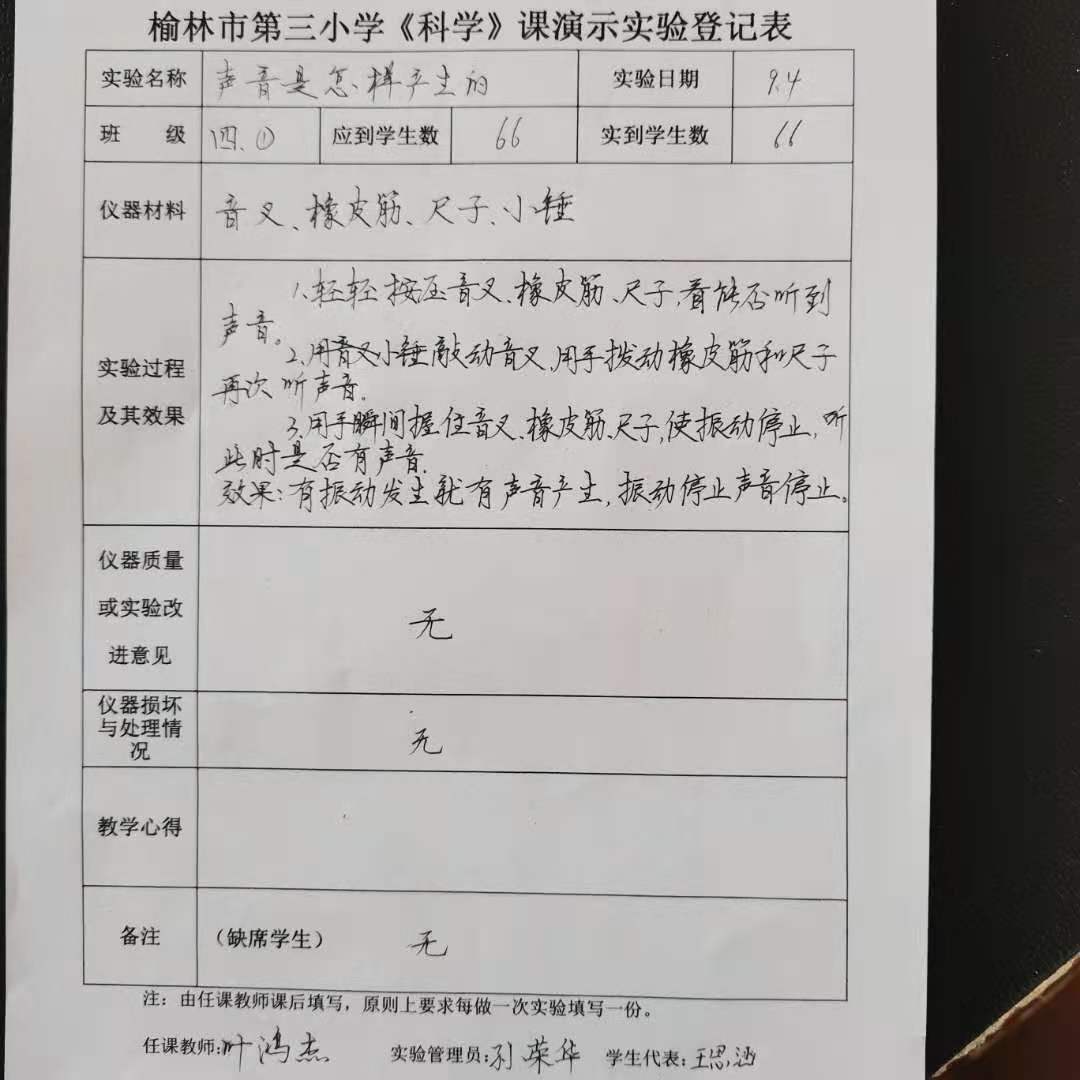 榆林市第三小学《科学》课演示实验登记表
实验名称 声音是怎样产生的 实验日期 9.4
班 级 四.① 应到学生数 66 实到学生数 66
仪器材料 音叉、橡皮筋、尺子、小锤
1.轻轻按压音叉、橡皮筋、尺子,看能否听到
声音。
2.用小锤敲动音叉,用手拨动橡皮筋和尺子
再次听声音.
3.用手瞬间握住音叉、橡皮筋、尺子,使振动停止,听
此时是否有声音.
效果:有振动发生就有声音产生,振动停止声音停止。
实验过程
及其效果
仪器质量
或实验改
进意见
无
仪器损坏
与处理情
况
无
教学心得
备注 (缺席学生) 无
注:由任课教师课后填写,原则上要求每做一次实验填写一份。
任课教师:叶鸿杰 实验管理员:孙荣华 学生代表:王思涵